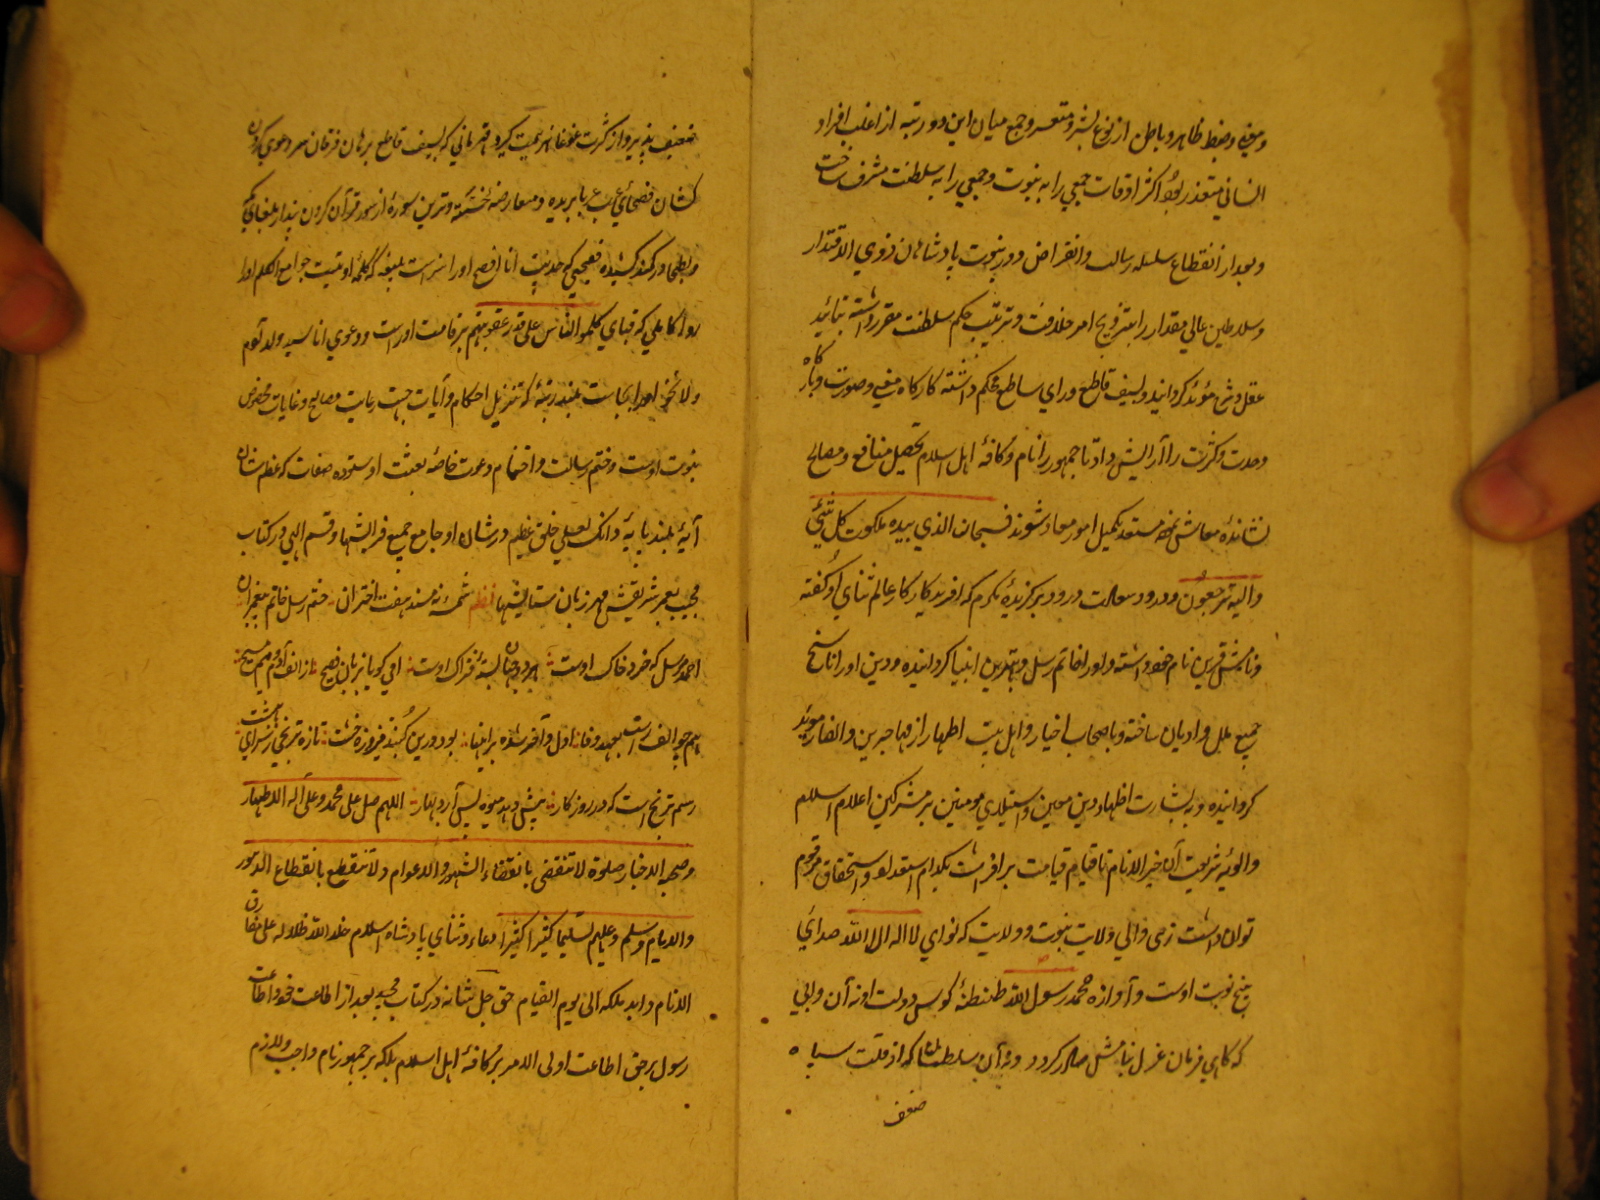 و ضبط ظاهر و باطن از نوع بشر متعسر و جمع میان این دو رتبه از اغلب افراد
انسانی متعذر بود اکثر اوقات جمعی را به نبوت و جمعی را به سلطنت مشرف ساخت
و بعد از انقطاع سلسله رسالت و انقراض دور نبوت پادشاهان ذوی الاقتدار
و سلاطین عالی مقدار را بترویج امر خلافت و ترتیب حکم سلطنت مقرر داشته بتائید
عقل و شرع مؤید گردانید و بسیف قاطع و رای ساطع محکم داشته کارگاه معنی و صورت و بارگاه
وحدت و کثرت را آرایش داد تا جمهور انام و کافهٔ اهل اسلام تحصیل منافع و مصالح
معاش نموده مستعد تکمیل امور معاد شوند فسبحان الذی بیده ملکوت کل شیئ
والیه ترجعون و درود برگزیدهٔ که آفریدگار عالم ثنای او گفته
و نامش قرین نام خود داشته و او را خاتم رسل و بهترین انبیا گردانیده و دین او را ناسخ
جمیع ملل و ادیان ساخته و باصحاب اخیار و اهل بیت اطهار از مهاجرین و انصار موید
گردانیده و به بشارت اظهار دین مبین و استیلای مومنین بر مشرکین اعلام اسلام
و الویهٔ شریعت آن خیر الانام تا قیام قیامت برافراشت بکدام استعداد و استحقاق مرقوم
توان داشت زهی والی ولایت نبوت و ولایت که نوای لا اله الا الله صدای
پنج نوبت اوست و آوازه محمد رسول الله طنطنهٔ کوس دولت او نه آن والی
که گاهی فرمان عزل بنامش صادر گردد و نه آن سلطان که از قلت سپاه
ضعف
ضعیف پذیرد و از کثرت غوغا هزیمت گیرد قهرمانی که بسیف قاطع برهان فرقان سر دعوی
فصحای عرب را بریده و معارضهٔ سورهٔ از سور قرآن کردن
و بطحا در کمند کشیده فصیحی که حدیث انا افصح او را سزاست بلیغی که کلمهٔ اوتیت جوامع الکلم او را
روا کاملی که قبای کلموا الناس علی قدر عقولهم بر قامت اوست و دعوی انا سید ولد آدم
ولا فخر او را بجاست بلند رتبهٔ که تنزیل احکام و آیات جهت رعایت مصالح و غایات مخصوص
نبوت اوست و ختم رسالت و اختتام دعوت خاصهٔ بعثت او ستوده صفات که عظم شان
آیهٔ بلند پایهٔ و انک لعلی خلق عظیم در شان او جامع جمیع و قسم الهی در کتاب
مجید بعمر شریفش مهر زبان ستایشها نظم شمسهٔ نه مسند هفت اختران ختم رسل خاتم پیغمبران
احمد مرسل که خرد خاک اوست هر دو جهان بستهٔ فتراک اوست امی گویا بزبان فصیح از الف آدم و میم مسیح
همچو الف راست بعهد و وفا اول و آخر شده بر انبیا بود درین گنبد فیروزه خشت تازه ترنجی ز سرای بهشت
رسم ترنج است که در روزگار پیش دهد میوه پس آرد بهار اللهم صل علی محمد و علی آله الاطهار
و صحبه الاخیار صلوة لا تنقضی بانقضاء الشهور والاعوام ولا تنقطع بانقطاع الدهور
والایام وسلم وعلیهم تسلیما کثیرا کثیرا دعاء و ثنای پادشاه اسلام خلد الله ظلاله علی مفارق
الانام و ابد ملکه الی یوم القیام حق جل شانه در کتاب مجید بعد از اطاعت خود و اطاعت
رسول برحق اطاعت اولی الامر بر کافهٔ اهل اسلام بلکه بر جمهور انام واجب و لازم